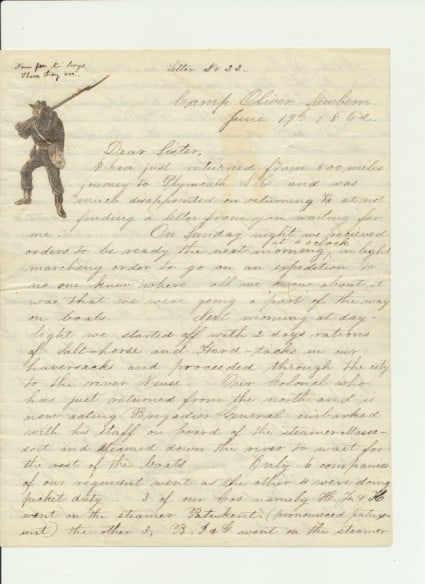 Now for it boys
There they are.
Letter No 22.
Camp Oliver Newbern.
June 19th 1862.
Dear Sister,
I have just returned from 500 miles
journey to Plymouth N.C. and was
much disappointed on returning at not
finding a letter from you waiting for
me. On Sunday night we received
orders to be ready the next morning, at 4 o'clock in light
marching order to go on an expedition to
no one knew where all we knew about it
was that we were going a part of the way
on boats. Next morning at day-
light we started off with 2 days rations
of Salt-horse and Hard-tacks in our
haversacks and proceeded through the city
to the river Neuse. Our Colonel who
has just returned from the north and is
now acting Brigadier General embarked
with his staff on board of the steamer Massa-
soit and steamed down the river to wait for
the rest of the boats. Only 6 companies
of our regiment went as the other 4 were doing
picket duty. 3 of our Cos namely H.
went on the steamer Patuxent. (pronounced
) the other 3, B. I & G went on the steamer